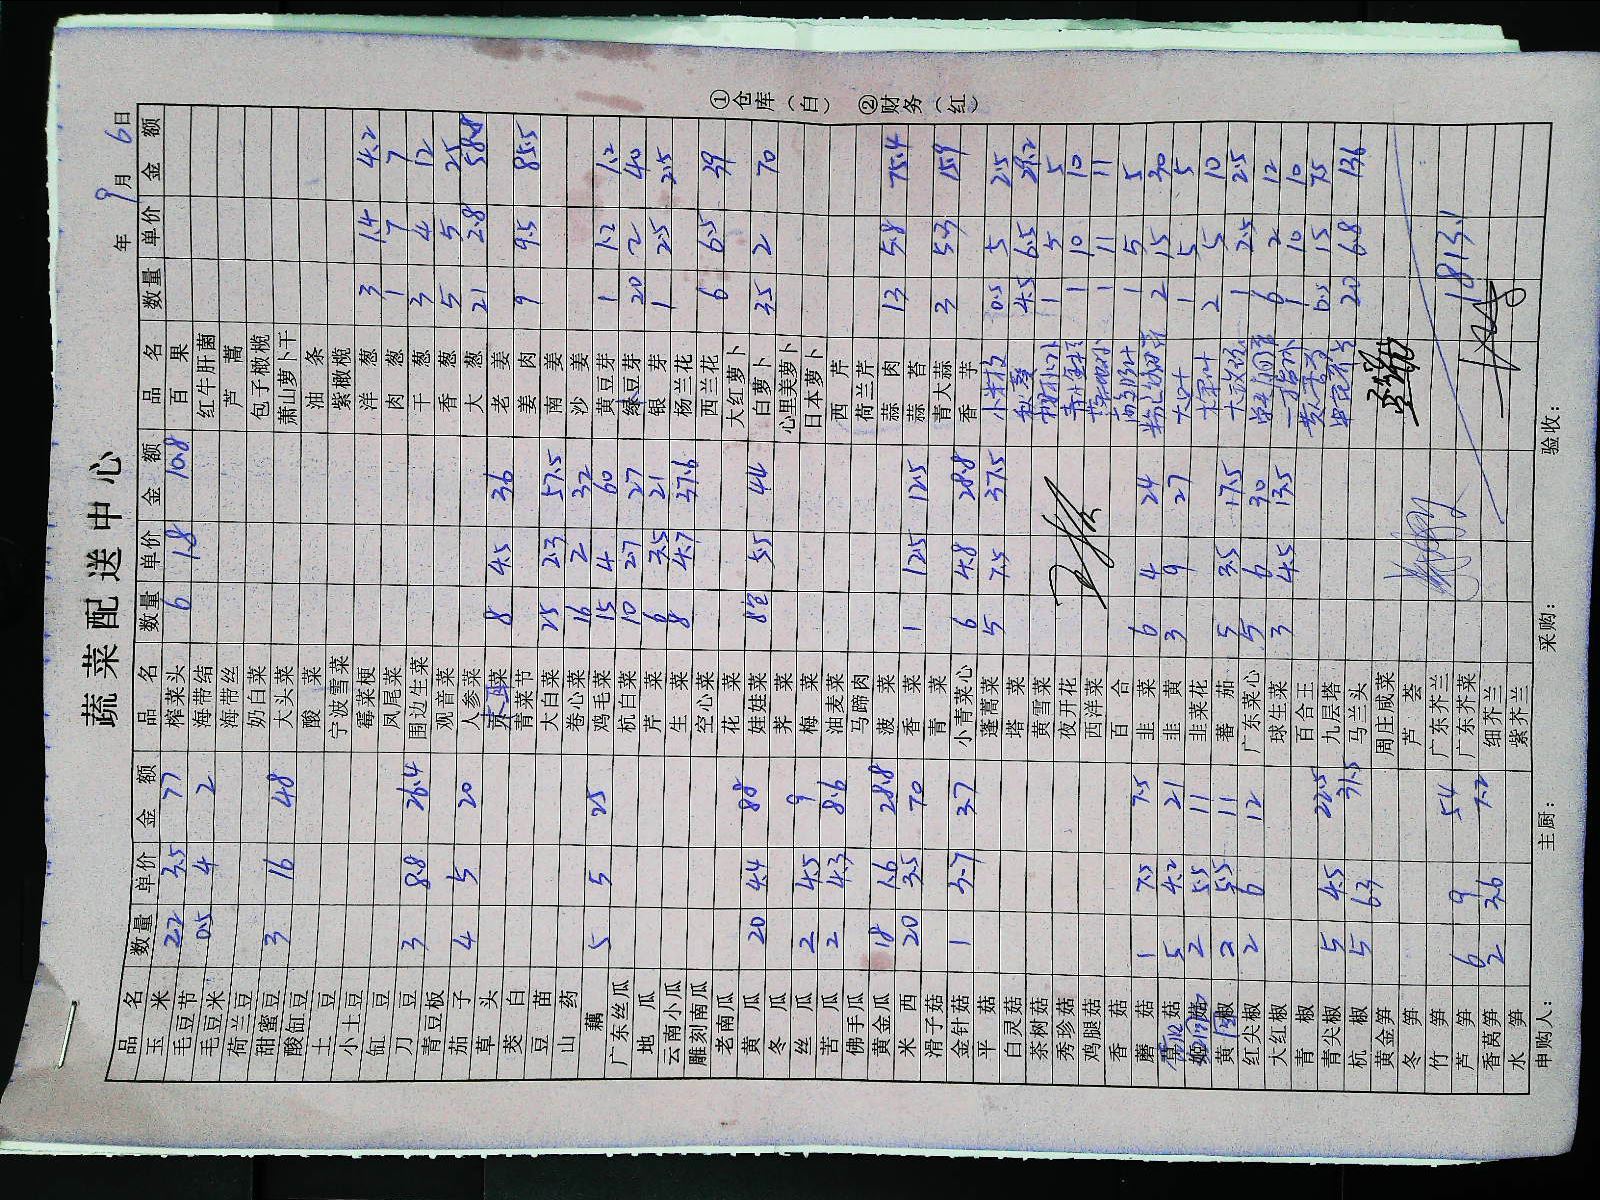 蔬菜配送中心
年 9月 6日
品名 数量 单价 金额 品名 数量 单价 金额 品名 数量 单价 金额
玉米 22 3.5 77 榨菜头 6 1.8 10.8 百果
毛豆节 0.5 4 2 海带结 红牛肝菌
毛豆米 海带丝 芦蒿
荷兰豆 奶白菜 包子橄榄
甜蜜豆 3 16 48 大头菜 萧山萝卜干
酸缸豆 酸菜 油条
土豆 宁波雪菜 紫橄榄
小土豆 霉菜梗 洋葱 3 1.4 4.2
缸豆 凤尾菜 肉葱 1 7 7
刀豆 3 8.8 26.4 围边生菜 干葱 3 4 12
青豆板 观音菜 香葱 5 5 25
茄子 4 5 20 人参菜 大葱 21 2.8 58.8
草头 菜 8 4.5 36 老姜
茭白 青菜节 姜肉 9 9.5 85.5
豆苗 大白菜 25 2.3 57.5 南姜
山药 卷心菜 16 2 32 沙姜
藕 5 5 25 鸡毛菜 15 4 60 黄豆芽 1 1.2 1.2
广东丝瓜 杭白菜 10 2.7 27 绿豆芽 20 2 40
地瓜 芹菜 6 3.5 21 银芽 1 2.5 2.5
云南小瓜 生菜 8 4.7 37.6 杨兰花
雕刻南瓜 空心菜 西兰花 6 6.5 39
老南瓜 花菜 大红萝卜
黄瓜 20 4.4 88 娃娃菜 8 5.5 44 白萝卜 35 2 70
冬瓜 荠菜 心里美萝卜
丝瓜 2 4.5 9 梅菜 日本萝卜
苦瓜 2 4.3 8.6 油麦菜 西芹
佛手瓜 马蹄肉 荷兰芹
黄金瓜 18 1.6 28.8 菠菜 蒜肉 13 5.8 75.4
米西 20 3.5 70 香菜 1 12.5 12.5 蒜苔
滑子菇 青菜 青大蒜 3 5.3 15.9
金针菇 1 3.7 3.7 小青菜心 6 4.8 28.8 香芋
平菇 蓬蒿菜 5 7.5 37.5 0.5 5 2.5
白灵菇 塔菜 4.5 6.5 29.2
茶树菇 黄雪菜 1 5 5
秀珍菇 夜开花 1 10 10
鸡腿菇 西洋菜 1 11 11
香菇 百合 1 5 5
蘑菇 1 7.5 7.5 韭菜 6 4 24 2 15 30
菇 5 4.2 21 韭黄 3 9 27 1 5 5
菇 2 5.5 11 韭菜花 2 5 10
黄圆椒 2 5.5 11 蕃茄 5 3.5 17.5 1 2.5 2.5
红尖椒 2 6 12 广东菜心 5 6 30 6 2 12
大红椒 球生菜 3 4.5 13.5 1 10 10
青椒 百合王 0.5 15 7.5
青尖椒 5 4.5 22.5 九层塔 20 6.8 136
杭椒 5 6.3 31.5 马兰头
黄金笋 周庄咸菜
冬笋 芦荟
竹笋 广东芥兰
芦笋 6 9 54 广东芥菜 1813.1
香莴笋 2 3.6 7.2 细芥兰
水笋 紫芥兰
申购人： 主厨： 采购： 验收：
①仓库（白） ②财务（红）